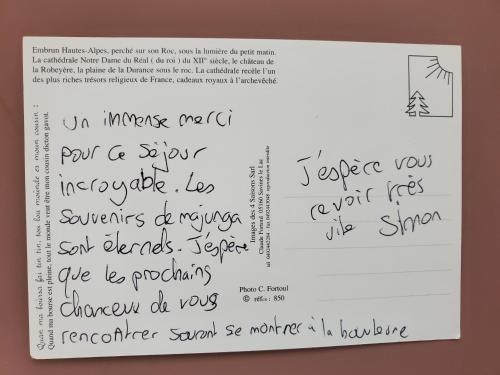 Embrun Hautes-Alpes, perché sur son Roc, sous la lumière du petit matin.
La cathédrale Notre Dame du Réal ( du roi ) du XIIº siècle, le château de
la Robeyère, la plaine de la Durance sous le roc. La cathédrale recèle l'un
des plus riches trésors religieux de France, cadeaux royaux à l'archevêché.
Quand ma bourse est pleine, tout le monde veut être mon cousin dicton gavot.
un immense merci
pour ce séjour
incroyable. Les
souvenirs de majunga
sont éternels. J'éspère
que les prochains
chanceux de vous
rencontrer sauront se montrer à la hauteure
Images des 4 Saisons Sarl
Claude Fortoul 05160 Savines le Lac
Photo C. Fortoul
© réf.: 850
J'éspère vous
revoir très
vite Simon